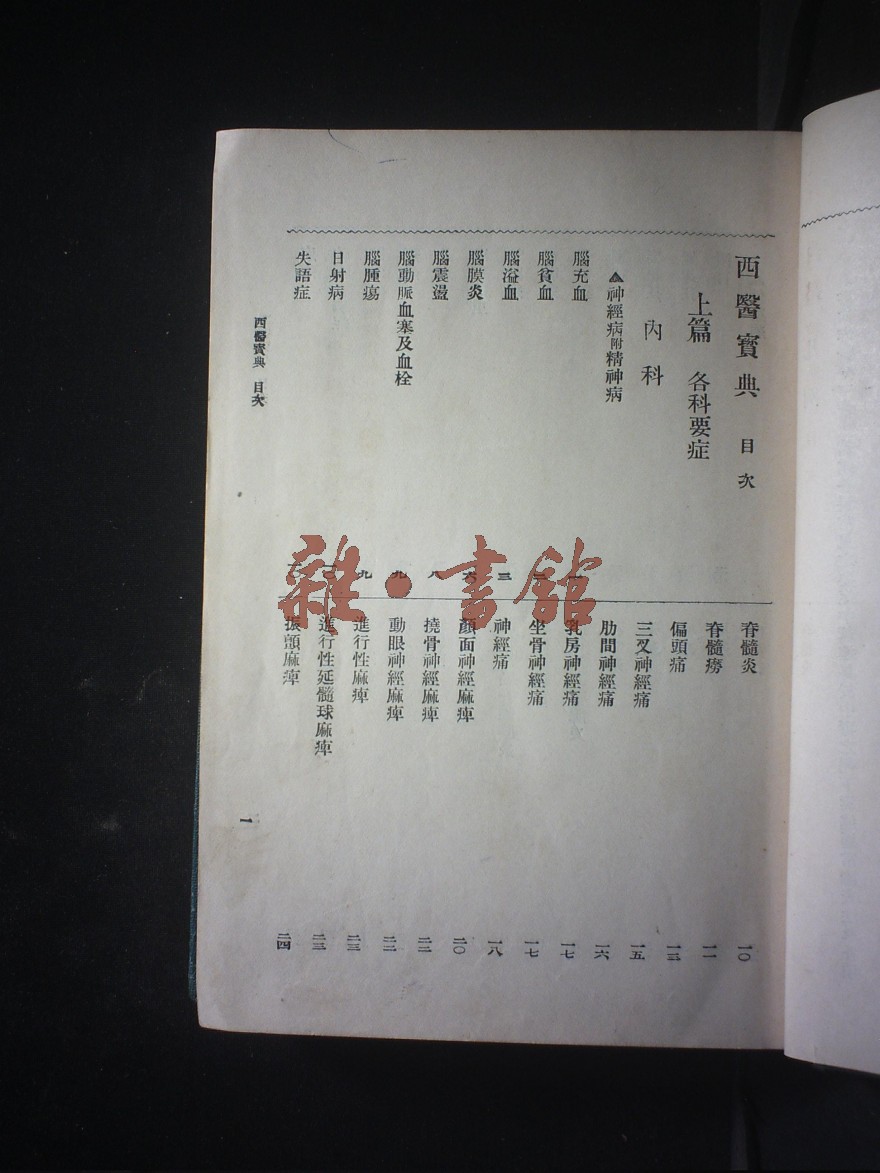 西醫寶典　目次
上篇　各科要症
內科
▲神經病附精神病
腦充血
腦貧血
腦溢血　三
腦膜炎　六
腦震盪　八
腦動脈血塞及血栓　九
腦腫瘍　九
日射病
失語症
脊髓炎　一〇
脊髓癆　一一
偏頭痛　一三
三叉神經痛　一五
肋間神經痛　一六
乳房神經痛　一七
坐骨神經痛　一七
神經痛　一八
顏面神經麻痺　二〇
撓骨神經麻痺　二二
動眼神經麻痺　二二
進行性麻痺　二三
進行性延髓球麻痺　二三
振顫麻痺　二四
西醫寶典　目次
一
雜·書館